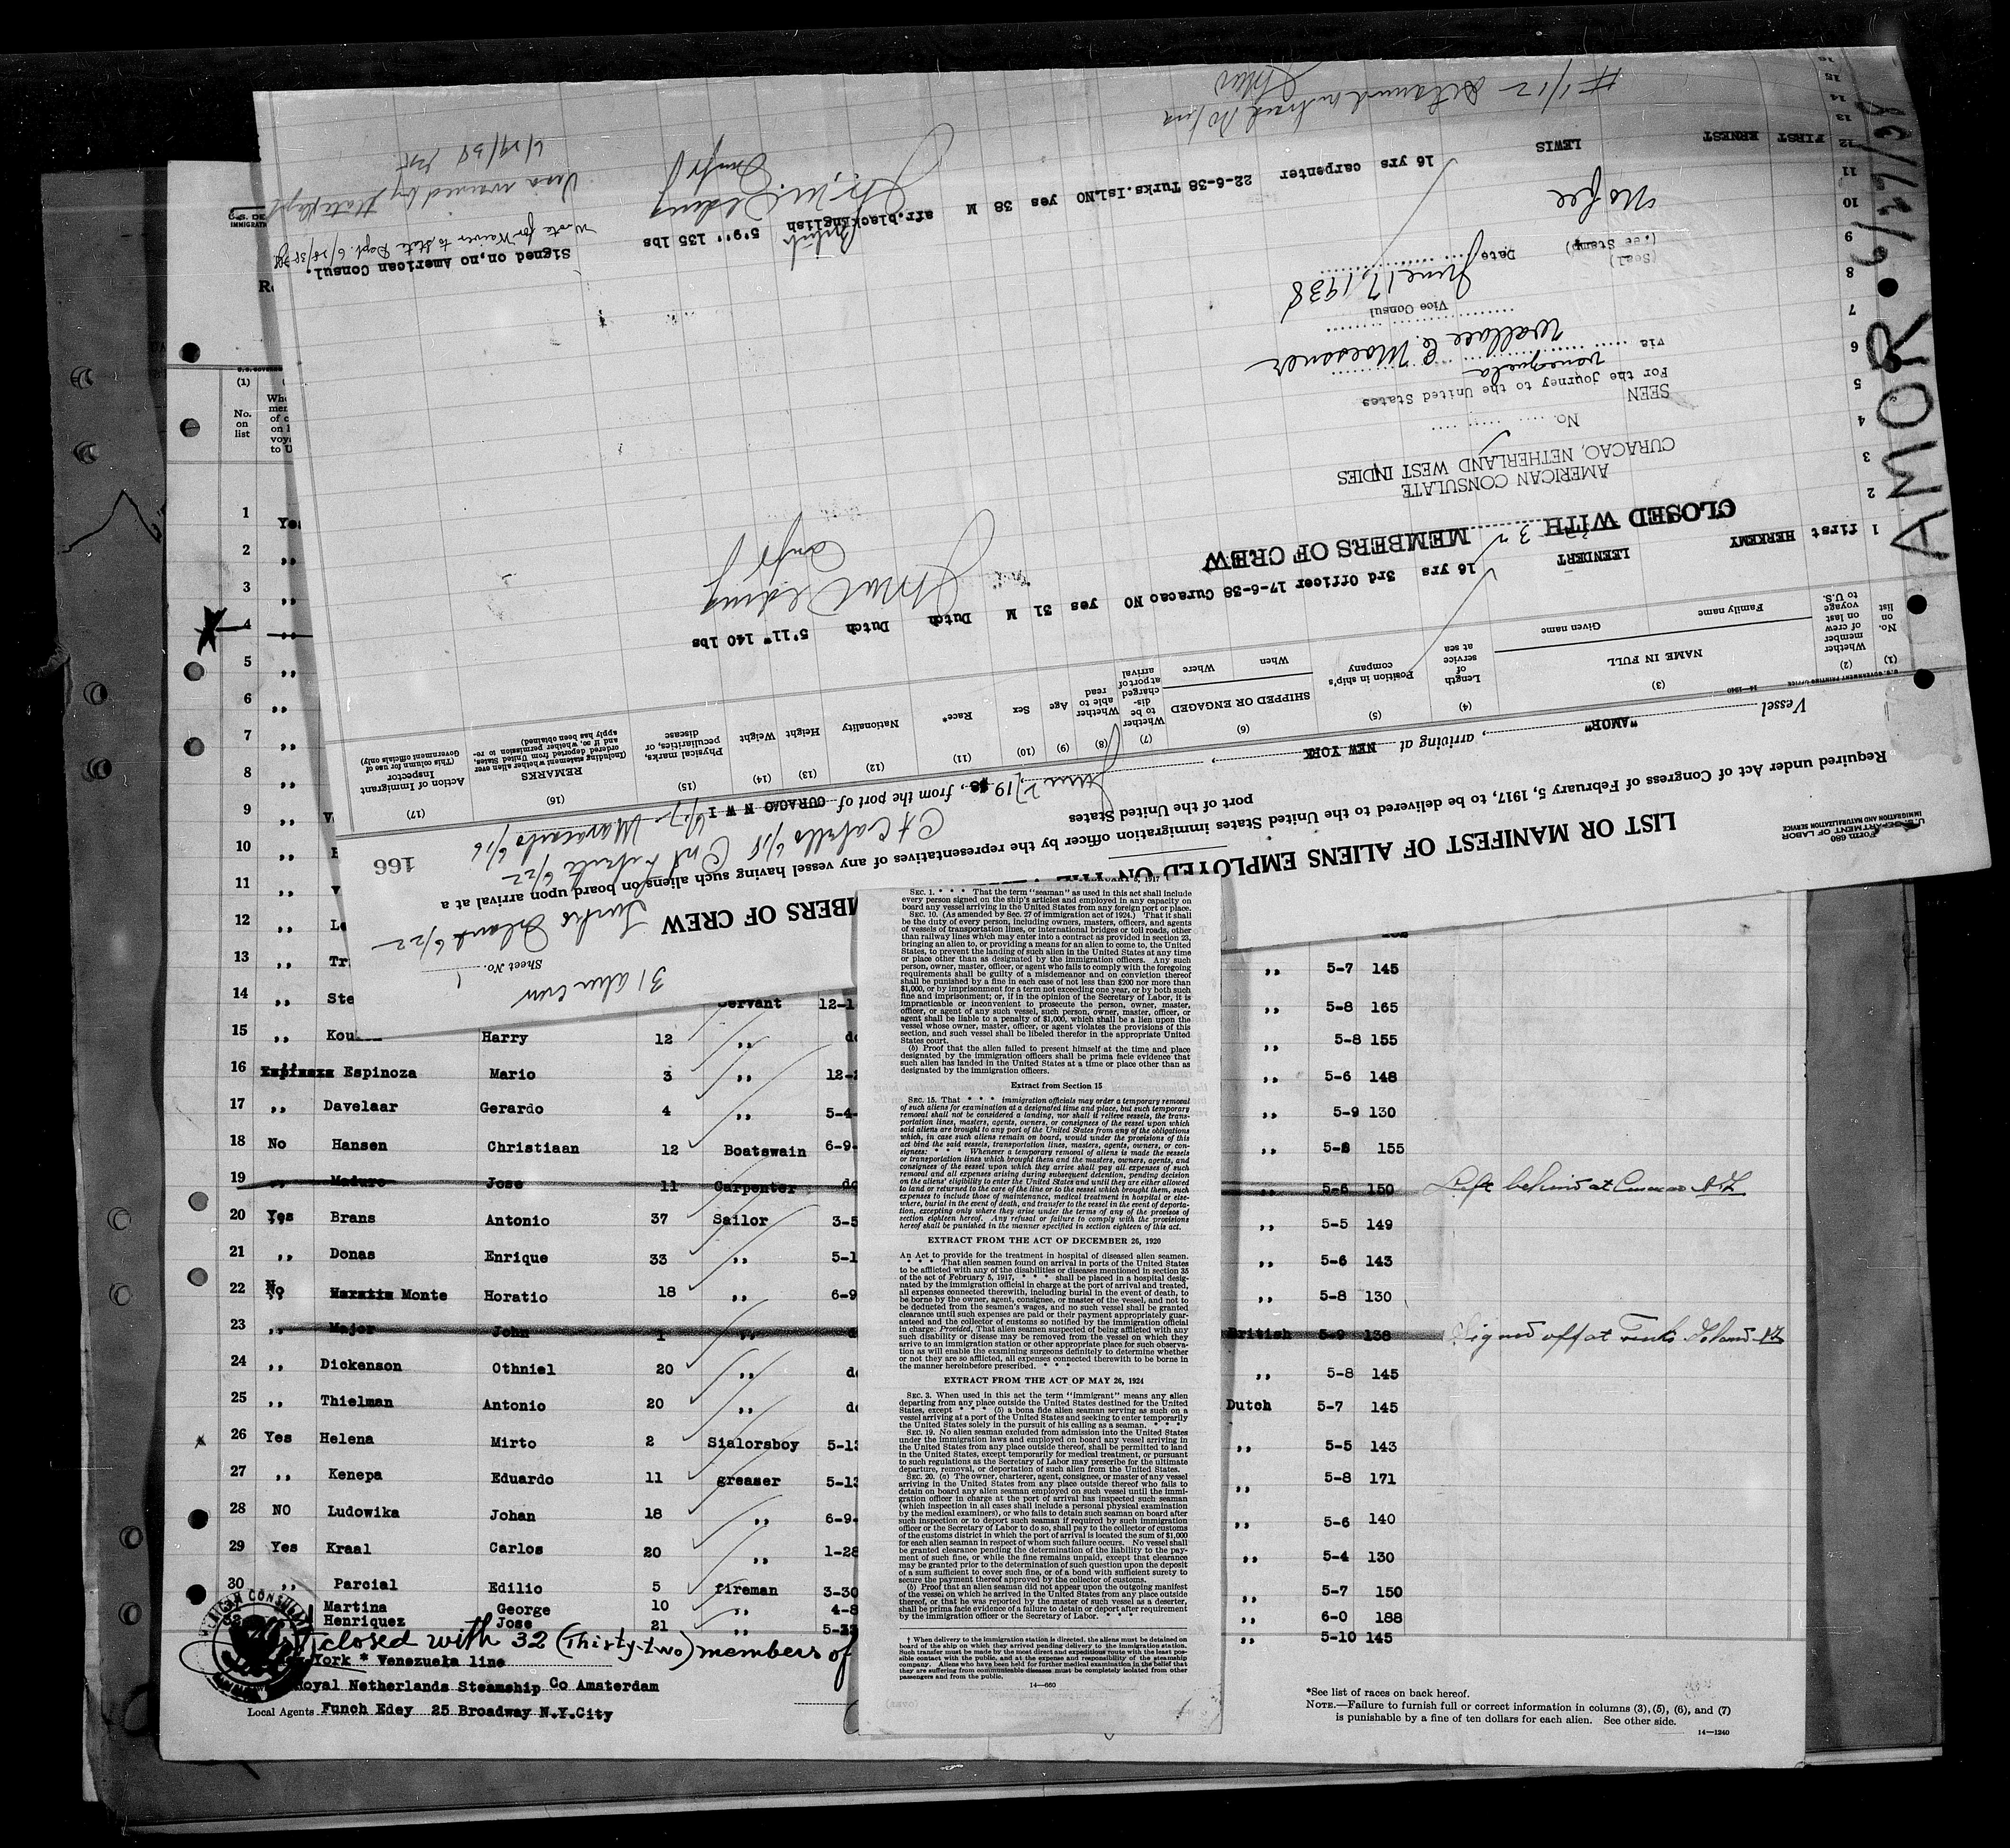 166
Form 680
U.S. DEPARTMENT OF LABOR
IMMIGRATION AND NATURALIZATION SERVICE
Sheet No.
31 alien crew
Turks Island 6/22
LIST OR MANIFEST OF ALIENS EMPLOYED ON THE
MBERS OF CREW
Required under Act of Congress of February 5, 1917, to be delivered to the United States immigration officer by the representatives of any vessel having such aliens on board upon arrival at a
port of the United States
Vessel "AMOR", arriving at NEW YORK, June 27 19 38, from the port of CURACAO N W I 6/17 Maracaibo 6/16
(1) (2) (3) (4) (5) (6) (7) (8) (9) (10) (11) (12) (13) (14) (15) (16) (17)
No. on list
Whether member of crew on last voyage to U.S.
NAME IN FULL
Family name Given name
Length of service at sea
Position in ship's company
SHIPPED OR ENGAGED
When Where
Whether to be discharged at port of arrival
Whether able to read
Age
Sex
Race*
Nationality
Height
Weight
Physical marks, peculiarities, or disease
REMARKS
(Including statement whether alien ever ordered deported from United States, and if so, whether permission to reapply has been obtained)
Action of Immigrant Inspector
(This column for use of Government officials only)
1 first HERKEMY LEENDERT 16 yrs 3rd Officer 17-6-38 Curacao NO yes 31 M Dutch Dutch 5'11" 140 lbs
CLOSED WITH 32 MEMBERS OF CREW
AMERICAN CONSULATE
CURACAO, NETHERLAND WEST INDIES
No.
SEEN
For the journey to the United States
via Venezuela
Wallace E. Moessner
Vice Consul
Date June 17, 1938
(Seal)
(Fee Stamp)
No fee
12 FIRST ERNEST LEWIS 16 yrs carpenter 22-6-38 Turks.Isl. NO yes 38 M afr.black English 5'9" 135 lbs
British
Signed on, no American Consul.
Wrote for Waiver to State Dept. 6/28/38
Visa waived by State Dept
6/29/38
AMOR
6/27/38
U.S. DE
IMMIGRATI
(1)
No. on list
1 Yes
2 ,,
3 ,,
4 ,,
5 ,,
6 ,,
7 ,,
8 ,,
9 ,,
10 ,,
11 ,,
12 ,, Le
13 ,, Tr ,, 5-7 145
14 ,, Ste Servant 12-1 ,, 5-8 165
15 ,, Kou Harry 12 ,, do ,, 5-8 155
16 Espinoza Mario 3 ,, 12- ,, 5-6 148
17 ,, Davelaar Gerardo 4 ,, 5-4- ,, 5-9 130
18 No Hansen Christiaan 12 Boatswain 6-9- ,, 5-8 155
19 ,, Maduro Jose 11 Carpenter do ,, 5-6 150 Left behind at Curacao
20 Yes Brans Antonio 37 Sailor 3-5 ,, 5-5 149
21 ,, Donas Enrique 33 ,, 5-1 ,, 5-6 143
22 No Monte Horatio 18 ,, 6-9 ,, 5-8 130
23 ,, Major John 1 ,, d British 5-9 138 Signed off at Turks Island
24 ,, Dickenson Othniel 20 ,, do ,, 5-8 145
25 ,, Thielman Antonio 20 ,, do Dutch 5-7 145
26 Yes Helena Mirto 2 Sialorsboy 5-13 ,, 5-5 143
27 ,, Kenepa Eduardo 11 greaser 5-13 ,, 5-8 171
28 NO Ludowika Johan 18 ,, 6-9- ,, 5-6 140
29 Yes Kraal Carlos 20 ,, 1-28 ,, 5-4 130
30 ,, Parcial Edilio 5 fireman 3-30 ,, 5-7 150
Martina George 10 ,, 4-8 ,, 6-0 188
Henriquez Jose 21 ,, ,, 5-10 145
closed with 32 (Thirty-two) members of
York * Venezuela line
Royal Netherlands Steamship Co Amsterdam
Local Agents Funch Edey 25 Broadway N.Y.City
*See list of races on back hereof.
NOTE.—Failure to furnish full or correct information in columns (3), (5), (6), and (7)
is punishable by a fine of ten dollars for each alien. See other side.
14—1240
SEC. 1. * * * That the term "seaman" as used in this act shall include
every person signed on the ship's articles and employed in any capacity on
board any vessel arriving in the United States from any foreign port or place.
SEC. 10. (As amended by Sec. 27 of immigration act of 1924.) That it shall
be the duty of every person, including owners, masters, officers, and agents
of vessels of transportation lines, or international bridges or toll roads, other
than railway lines which may enter into a contract as provided in section 23,
bringing an alien to, or providing a means for an alien to come to, the United
States, to prevent the landing of such alien in the United States at any time
or place other than as designated by the immigration officers. Any such
person, owner, master, officer, or agent who fails to comply with the foregoing
requirements shall be guilty of a misdemeanor and on conviction thereof
shall be punished by a fine in each case of not less than $200 nor more than
$1,000, or by imprisonment for a term not exceeding one year, or by both such
fine and imprisonment; or, if in the opinion of the Secretary of Labor, it is
impracticable or inconvenient to prosecute the person, owner, master,
officer, or agent of any such vessel, such person, owner, master, officer, or
agent shall be liable to a penalty of $1,000, which shall be a lien upon the
vessel whose owner, master, officer, or agent violates the provisions of this
section, and such vessel shall be libeled therefor in the appropriate United
States court.
(b) Proof that the alien failed to present himself at the time and place
designated by the immigration officers shall be prima facie evidence that
such alien has landed in the United States at a time or place other than as
designated by the immigration officers.
Extract from Section 15
SEC. 15. That * * * immigration officials may order a temporary removal
of such aliens for examination at a designated time and place, but such temporary
removal shall not be considered a landing, nor shall it relieve vessels, the trans-
portation lines, masters, agents, owners, or consignees of the vessel upon which
said aliens are brought to any port of the United States from any of the obligations
which, in case such aliens remain on board, would under the provisions of this
act bind the said vessels, transportation lines, masters, agents, owners, or con-
signees: * * * Whenever a temporary removal of aliens is made the vessels
or transportation lines which brought them and the masters, owners, agents, and
consignees of the vessel upon which they arrive shall pay all expenses of such
removal and all expenses arising during subsequent detention, pending decision
on the aliens' eligibility to enter the United States and until they are either allowed
to land or returned to the care of the line or to the vessel which brought them, such
expenses to include those of maintenance, medical treatment in hospital or else-
where, burial in the event of death, and transfer to the vessel in the event of deporta-
tion, excepting only where they arise under the terms of any of the provisos of
section eighteen hereof. Any refusal or failure to comply with the provisions
hereof shall be punished in the manner specified in section eighteen of this act.
EXTRACT FROM THE ACT OF DECEMBER 26, 1920
An Act to provide for the treatment in hospital of diseased alien seamen.
* * * That alien seamen found on arrival in ports of the United States
to be afflicted with any of the disabilities or diseases mentioned in section 35
of the act of February 5, 1917, * * * shall be placed in a hospital desig-
nated by the immigration official in charge at the port of arrival and treated,
all expenses connected therewith, including burial in the event of death, to
be borne by the owner, agent, consignee, or master of the vessel, and not to
be deducted from the seamen's wages, and no such vessel shall be granted
clearance until such expenses are paid or their payment appropriately guar-
anteed and the collector of customs so notified by the immigration official
in charge: Provided, That alien seamen suspected of being afflicted with any
such disability or disease may be removed from the vessel on which they
arrive to an immigration station or other appropriate place for such observa-
tion as will enable the examining surgeons definitely to determine whether
or not they are so afflicted, all expenses connected therewith to be borne in
the manner hereinbefore prescribed. * * *
EXTRACT FROM THE ACT OF MAY 26, 1924
SEC. 3. When used in this act the term "immigrant" means any alien
departing from any place outside the United States destined for the United
States, except * * * (5) a bona fide alien seaman serving as such on a
vessel arriving at a port of the United States and seeking to enter temporarily
the United States solely in the pursuit of his calling as a seaman. * * *
SEC. 19. No alien seaman excluded from admission into the United States
under the immigration laws and employed on board any vessel arriving in
the United States from any place outside thereof, shall be permitted to land
in the United States, except temporarily for medical treatment, or pursuant
to such regulations as the Secretary of Labor may prescribe for the ultimate
departure, removal, or deportation of such alien from the United States.
SEC. 20. (a) The owner, charterer, agent, consignee, or master of any vessel
arriving in the United States from any place outside thereof who fails to
detain on board any alien seaman employed on such vessel until the immi-
gration officer in charge at the port of arrival has inspected such seaman
(which inspection in all cases shall include a personal physical examination
by the medical examiners), or who fails to detain such seaman on board after
such inspection or to deport such seaman if required by such immigration
officer or the Secretary of Labor to do so, shall pay to the collector of customs
of the customs district in which the port of arrival is located the sum of $1,000
for each alien seaman in respect of whom such failure occurs. No vessel shall
be granted clearance pending the determination of the liability to the pay-
ment of such fine, or while the fine remains unpaid, except that clearance
may be granted prior to the determination of such question upon the deposit
of a sum sufficient to cover such fine, or of a bond with sufficient surety to
secure the payment thereof approved by the collector of customs.
(b) Proof that an alien seaman did not appear upon the outgoing manifest
of the vessel on which he arrived in the United States from any place outside
thereof, or that he was reported by the master of such vessel as a deserter,
shall be prima facie evidence of a failure to detain or deport after requirement
by the immigration officer or the Secretary of Labor. * * *
† When delivery to the immigration station is directed, the aliens must be detained on
board of the ship on which they arrived pending delivery to the immigration station.
Such transfer must be made by the most direct and expeditious route with the least pos-
sible contact with the public, and at the expense and responsibility of the steamship
company. Aliens who have been held for further medical examination in the belief that
they are suffering from communicable diseases must be completely isolated from other
passengers and from the public.
14—660